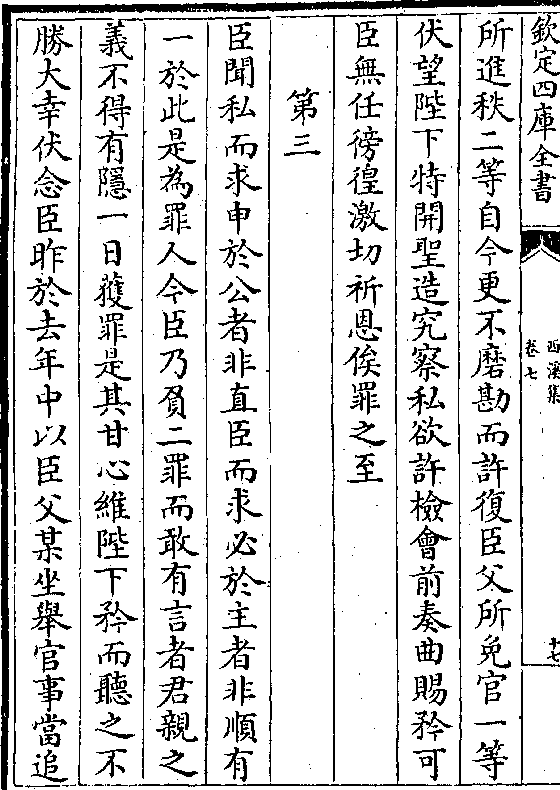 欽定四庫全書
西溪集
卷七
十七
所進秩二等自今更不磨勘而許復臣父所免官一等
伏望陛下特開聖造究察私欲許檢會前奏曲賜矜可
臣無任徬徨激切祈恩俟罪之至
第三
臣聞私而求申於公者非直臣而求必於主者非順有
一於此是為罪人今臣乃負二罪而敢有言者君親之
義不得有隱一日獲罪是其甘心維陛下矜而聽之不
勝大幸伏念臣昨於去年中以臣父某坐舉官事當追